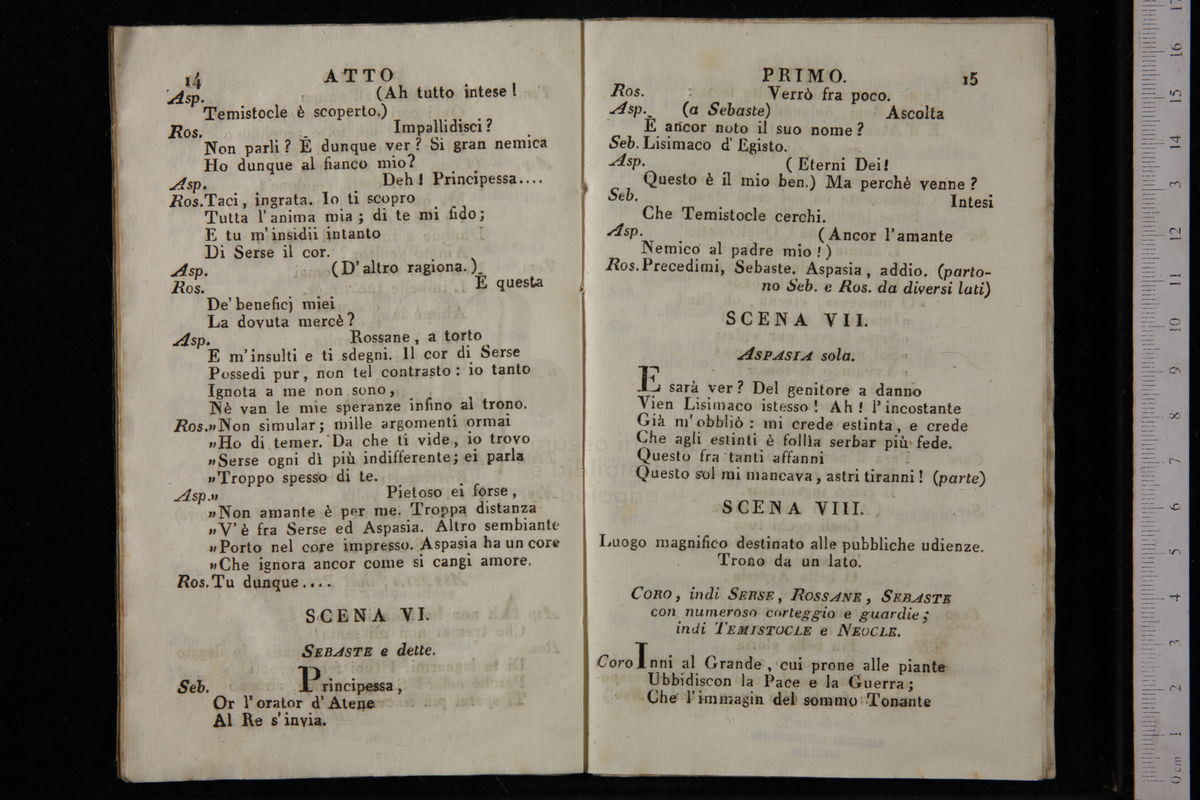 14 ATTO
Asp. (Ah tutto intese!
Temistocle è scoperto.)
Ros. Impallidisci?
Non parli? È dunque ver? Si gran nemica
Ho dunque al fianco mio?
Asp. Deh! Principessa....
Ros. Taci, ingrata. Io ti scopro
Tutta l'anima mia; di te mi fido;
E tu m'insidii intanto
Di Serse il cor.
Asp. (D'altro ragiona.)
Ros. È questa
De' beneficj miei
La dovuta mercè?
Asp. Rossane, a torto
E m'insulti e ti sdegni. Il cor di Serse
Possedi pur, non tel contrasto: io tanto
Ignota a me non sono,
Nè van le mie speranze infino al trono.
Ros. »Non simular; mille argomenti ormai
»Ho di temer. Da che ti vide, io trovo
»Serse ogni dì più indifferente; ei parla
»Troppo spesso di te.
Asp. » Pietoso ei forse,
»Non amante è per me. Troppa distanza
»V'è fra Serse ed Aspasia. Altro sembiante
»Porto nel core impresso. Aspasia ha un core
»Che ignora ancor come si cangi amore.
Ros. Tu dunque....
SCENA VI.
SEBASTE e dette.
Seb. Principessa,
Or l'orator d'Atene
Al Re s'invia.
PRIMO. 15
Ros. Verrò fra poco.
Asp. (a Sebaste) Ascolta
È ancor noto il suo nome?
Seb. Lisimaco d'Egisto.
Asp. (Eterni Dei!
Questo è il mio ben.) Ma perchè venne?
Seb. Intesi
Che Temistocle cerchi.
Asp. (Ancor l'amante
Nemico al padre mio!)
Ros. Precedimi, Sebaste. Aspasia, addio. (parto-
no Seb. e Ros. da diversi lati)
SCENA VII.
ASPASIA sola.
E sarà ver? Del genitore a danno
Vien Lisimaco istesso! Ah! l'incostante
Già m'obbliò: mi crede estinta, e crede
Che agli estinti è follìa serbar più fede.
Questo fra tanti affanni
Questo sol mi mancava, astri tiranni! (parte)
SCENA VIII.
Luogo magnifico destinato alle pubbliche udienze.
Trono da un lato.
CORO, indi SERSE, ROSSANE, SEBASTE
con numeroso corteggio e guardie;
indi TEMISTOCLE e NEOCLE.
Coro Inni al Grande, cui prone alle piante
Ubbidiscon la Pace e la Guerra;
Che l'immagin del sommo Tonante